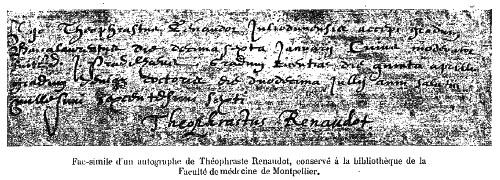 Ego Theophrastus Renaudot Juliodunensis accepi gradum
Baccalaureatus die decima sexta Januarii
gradum die quinta aprilis
gradum doctoris die duodecima Jullij anni
sexcentesimi
Theophrastus Renaudot.
Fac-simile d'un autographe de Théophraste Renaudot, conservé à la bibliothèque de la
Faculté de médecine de Montpellier.